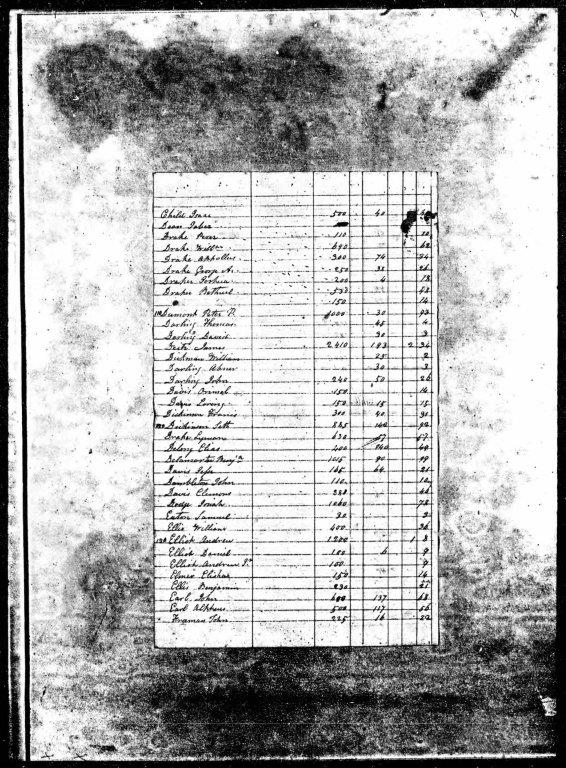 Child Isaac 500 40
Dean Jabez
Drake Peres 110
Drake Willm 690 62
Drake Appollus 300 74 34
Drake George A. 250 38 26
Draper Joshua 200 4 18
Draper Bethuel 52
150 14
Dumont Peter P. 1000 30 93
Darling Thomas 45 4
Darling David 30 3
James 2410 193 2 34
Dickman William 25 2
Darling Abner 30 3
Darling John 240 50 26
Davis Orimel 150 14
Davis Loring 150 15 15
Dickinson Francis 300 40 31
Dickinson Seth 885 142 92
Drake Lyman 630 67 59
Delong Elias 400 140 49
Delamarter Benjn 1015 90 99
Davis Jesse 165 64 21
Dumbleton John 110 10
Davis Clemons
Dodge Josiah 1060 78
Eaton Samuel 30 3
Ellis William 400 36
Elliot Andrew 1200 1 8
Elliot Daniel 100 6 9
Elliot Andrew Jr. 100 9
Elmer Elisha 150 14
Ellis Benjamin 230 21
Earl John 600 137 68
Earl Alpheus 500 117 56
Framan John 225 16 22